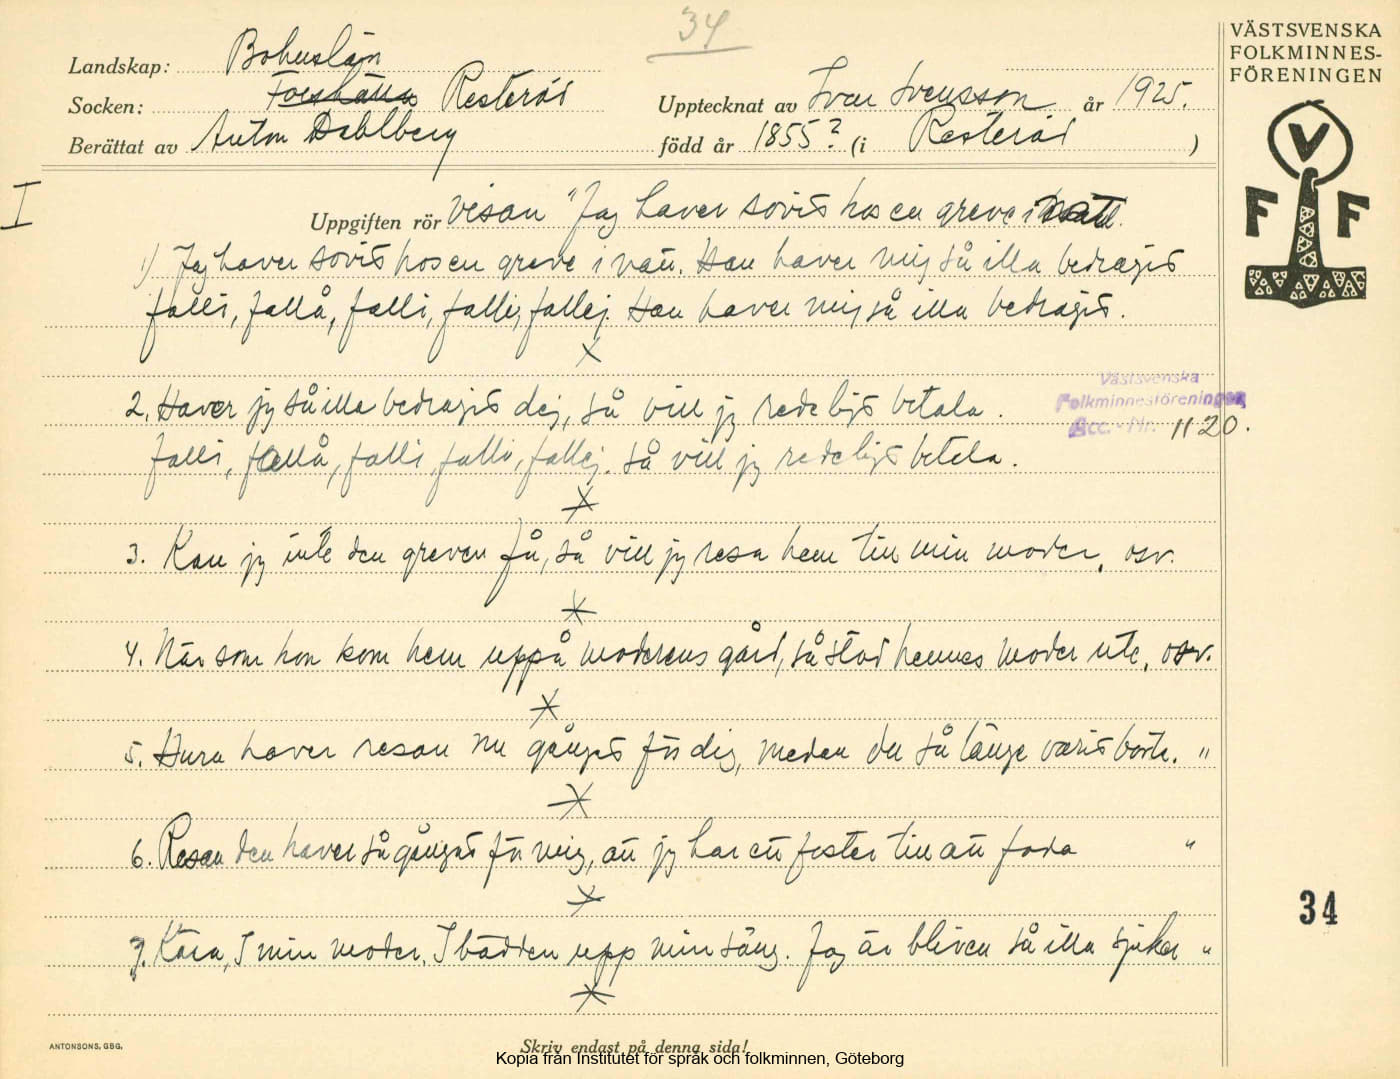 34
VÄSTSVENSKA
FOLKMINNES-
FÖRENINGEN
V
F F
Landskap: Bohuslän
Socken: Forshälla Resteröd
Upptecknat av Ivar Svensson år 1925.
Berättat av Anton Dahlberg
född år 1855? (i Resteröd )
I
Uppgiften rör visan "Jag haver sovit hos en greve i natt.
1) Jag haver sovit hos en greve i natt. Han haver mig så illa bedragit
falli, fallå, falli, falli, fallej. Han haver mig så illa bedragit.
2. Haver jg så illa bedragit dej, så vill jg redeligt betala.
Västsvenska
Folkminnesföreningen
Acc.-Nr. 1120.
falli, fallå, falli, falli, fallej. så vill jg redeligt betala.
3. Kan jg inte den greven få, så vill jg resa hem till min moder, osv.
4. När som hon kom hem uppå moderens gård, så stod hennes moder ute, osv.
5. Huru haver resan nu gånget för dig, medan du så länge varit borte. "
6. Resan den haver så gånget för mig, att jg har ett foster till att föda "
7. Kära, I min moder, I bädden upp min säng. Jag är bliven så illa sjuker "
34
ANTONSONS, GBG.
Skriv endast på denna sida!
Kopia från Institutet för språk och folkminnen, Göteborg